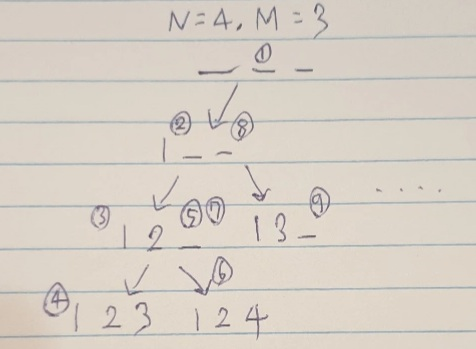 N=4, M=3
_ _ _ ①
1 _ _ ② ⑧
③ 1 2 _ ⑤ ⑦ 1 3 _ ⑨ ....
④ 1 2 3 1 2 4 ⑥